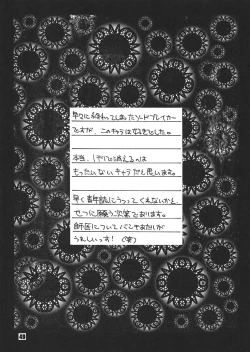 早々に終わってしまったソードブレイカー
ですが、このキャラは好きでした。
本当、1チリで消えるのは
もったいないキャラだと思います。
早く青年誌にうつってくれないかと、
せつに願う次第であります。
師匠について
うれしいっす！(笑)